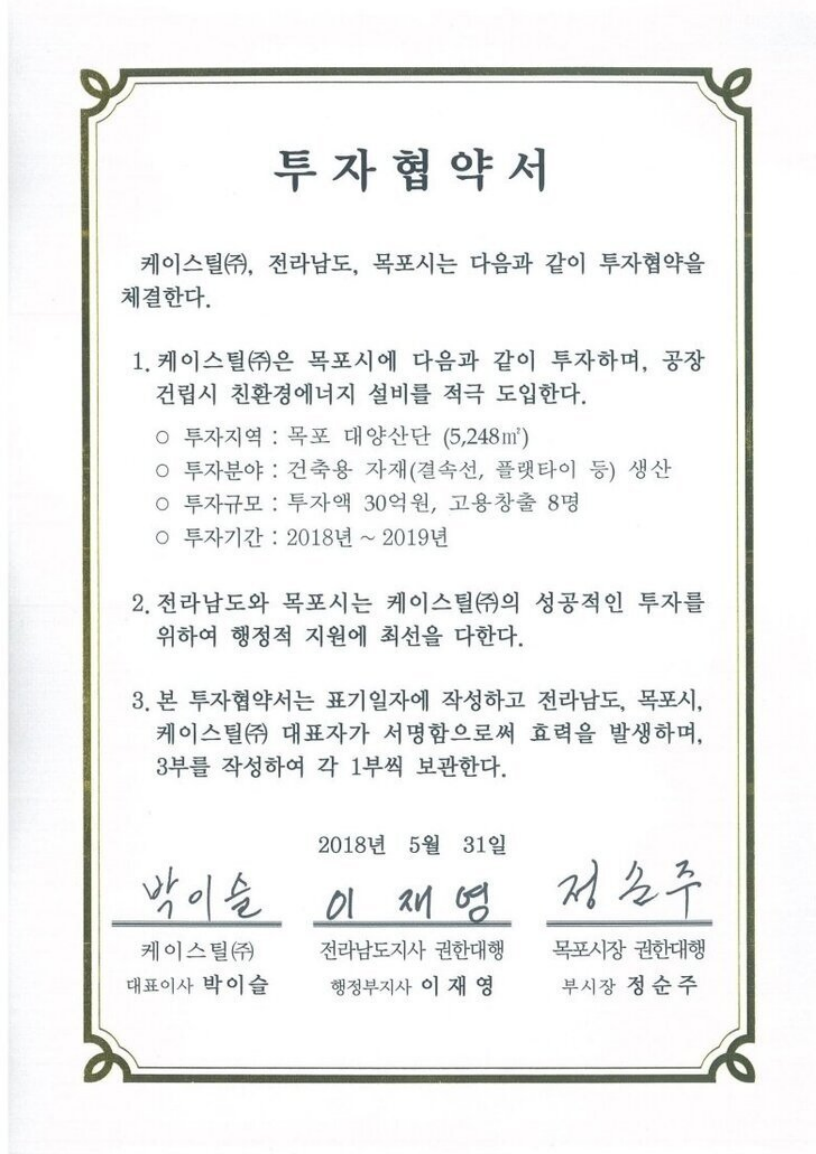 투자협약서
케이스틸㈜, 전라남도, 목포시는 다음과 같이 투자협약을
체결한다.
1. 케이스틸㈜은 목포시에 다음과 같이 투자하며, 공장
건립시 친환경에너지 설비를 적극 도입한다.
○ 투자지역 : 목포 대양산단 (5,248㎡)
○ 투자분야 : 건축용 자재(결속선, 플랫타이 등) 생산
○ 투자규모 : 투자액 30억원, 고용창출 8명
○ 투자기간 : 2018년 ~ 2019년
2. 전라남도와 목포시는 케이스틸㈜의 성공적인 투자를
위하여 행정적 지원에 최선을 다한다.
3. 본 투자협약서는 표기일자에 작성하고 전라남도, 목포시,
케이스틸㈜ 대표자가 서명함으로써 효력을 발생하며,
3부를 작성하여 각 1부씩 보관한다.
2018년 5월 31일
박이슬 이재영 정순주
케이스틸㈜ 전라남도지사 권한대행 목포시장 권한대행
대표이사 박이슬 행정부지사 이재영 부시장 정순주